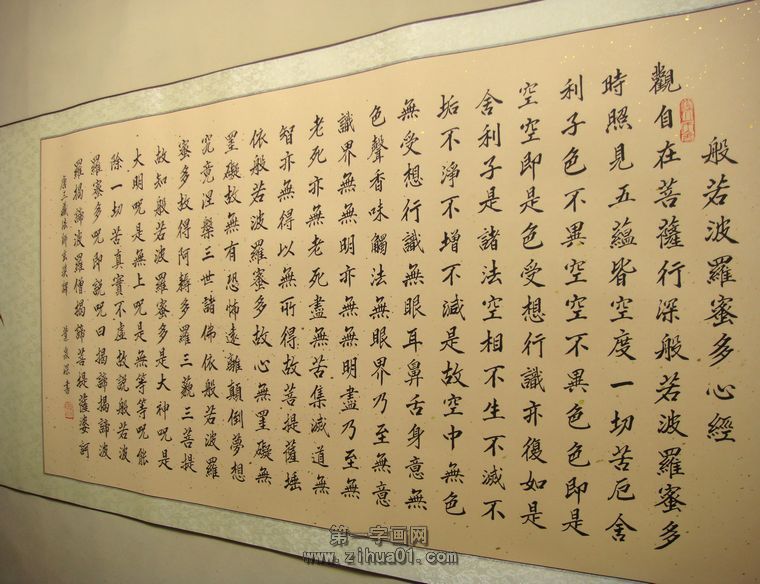 般若波羅蜜多心經
觀自在菩薩行深般若波羅蜜多
時照見五蘊皆空度一切苦厄舍
利子色不異空空不異色色即是
空空即是色受想行識亦復如是
舍利子是諸法空相不生不滅不
垢不淨不增不減是故空中無色
無受想行識無眼耳鼻舌身意無
色聲香味觸法無眼界乃至無意
識界無無明亦無無明盡乃至無
老死亦無老死盡無苦集滅道無
智亦無得以無所得故菩提薩埵
依般若波羅蜜多故心無罣礙無
罣礙故無有恐怖遠離顛倒夢想
究竟涅槃三世諸佛依般若波羅
蜜多故得阿耨多羅三藐三菩提
故知般若波羅蜜多是大神呪是
大明呪是無上呪是無等等呪能
除一切苦真實不虛故說般若波
羅蜜多呪即說呪曰揭諦揭諦波
羅揭諦波羅僧揭諦菩提薩婆訶
唐三藏法師玄奘譯 書
第一字画网
www.zihua01.com